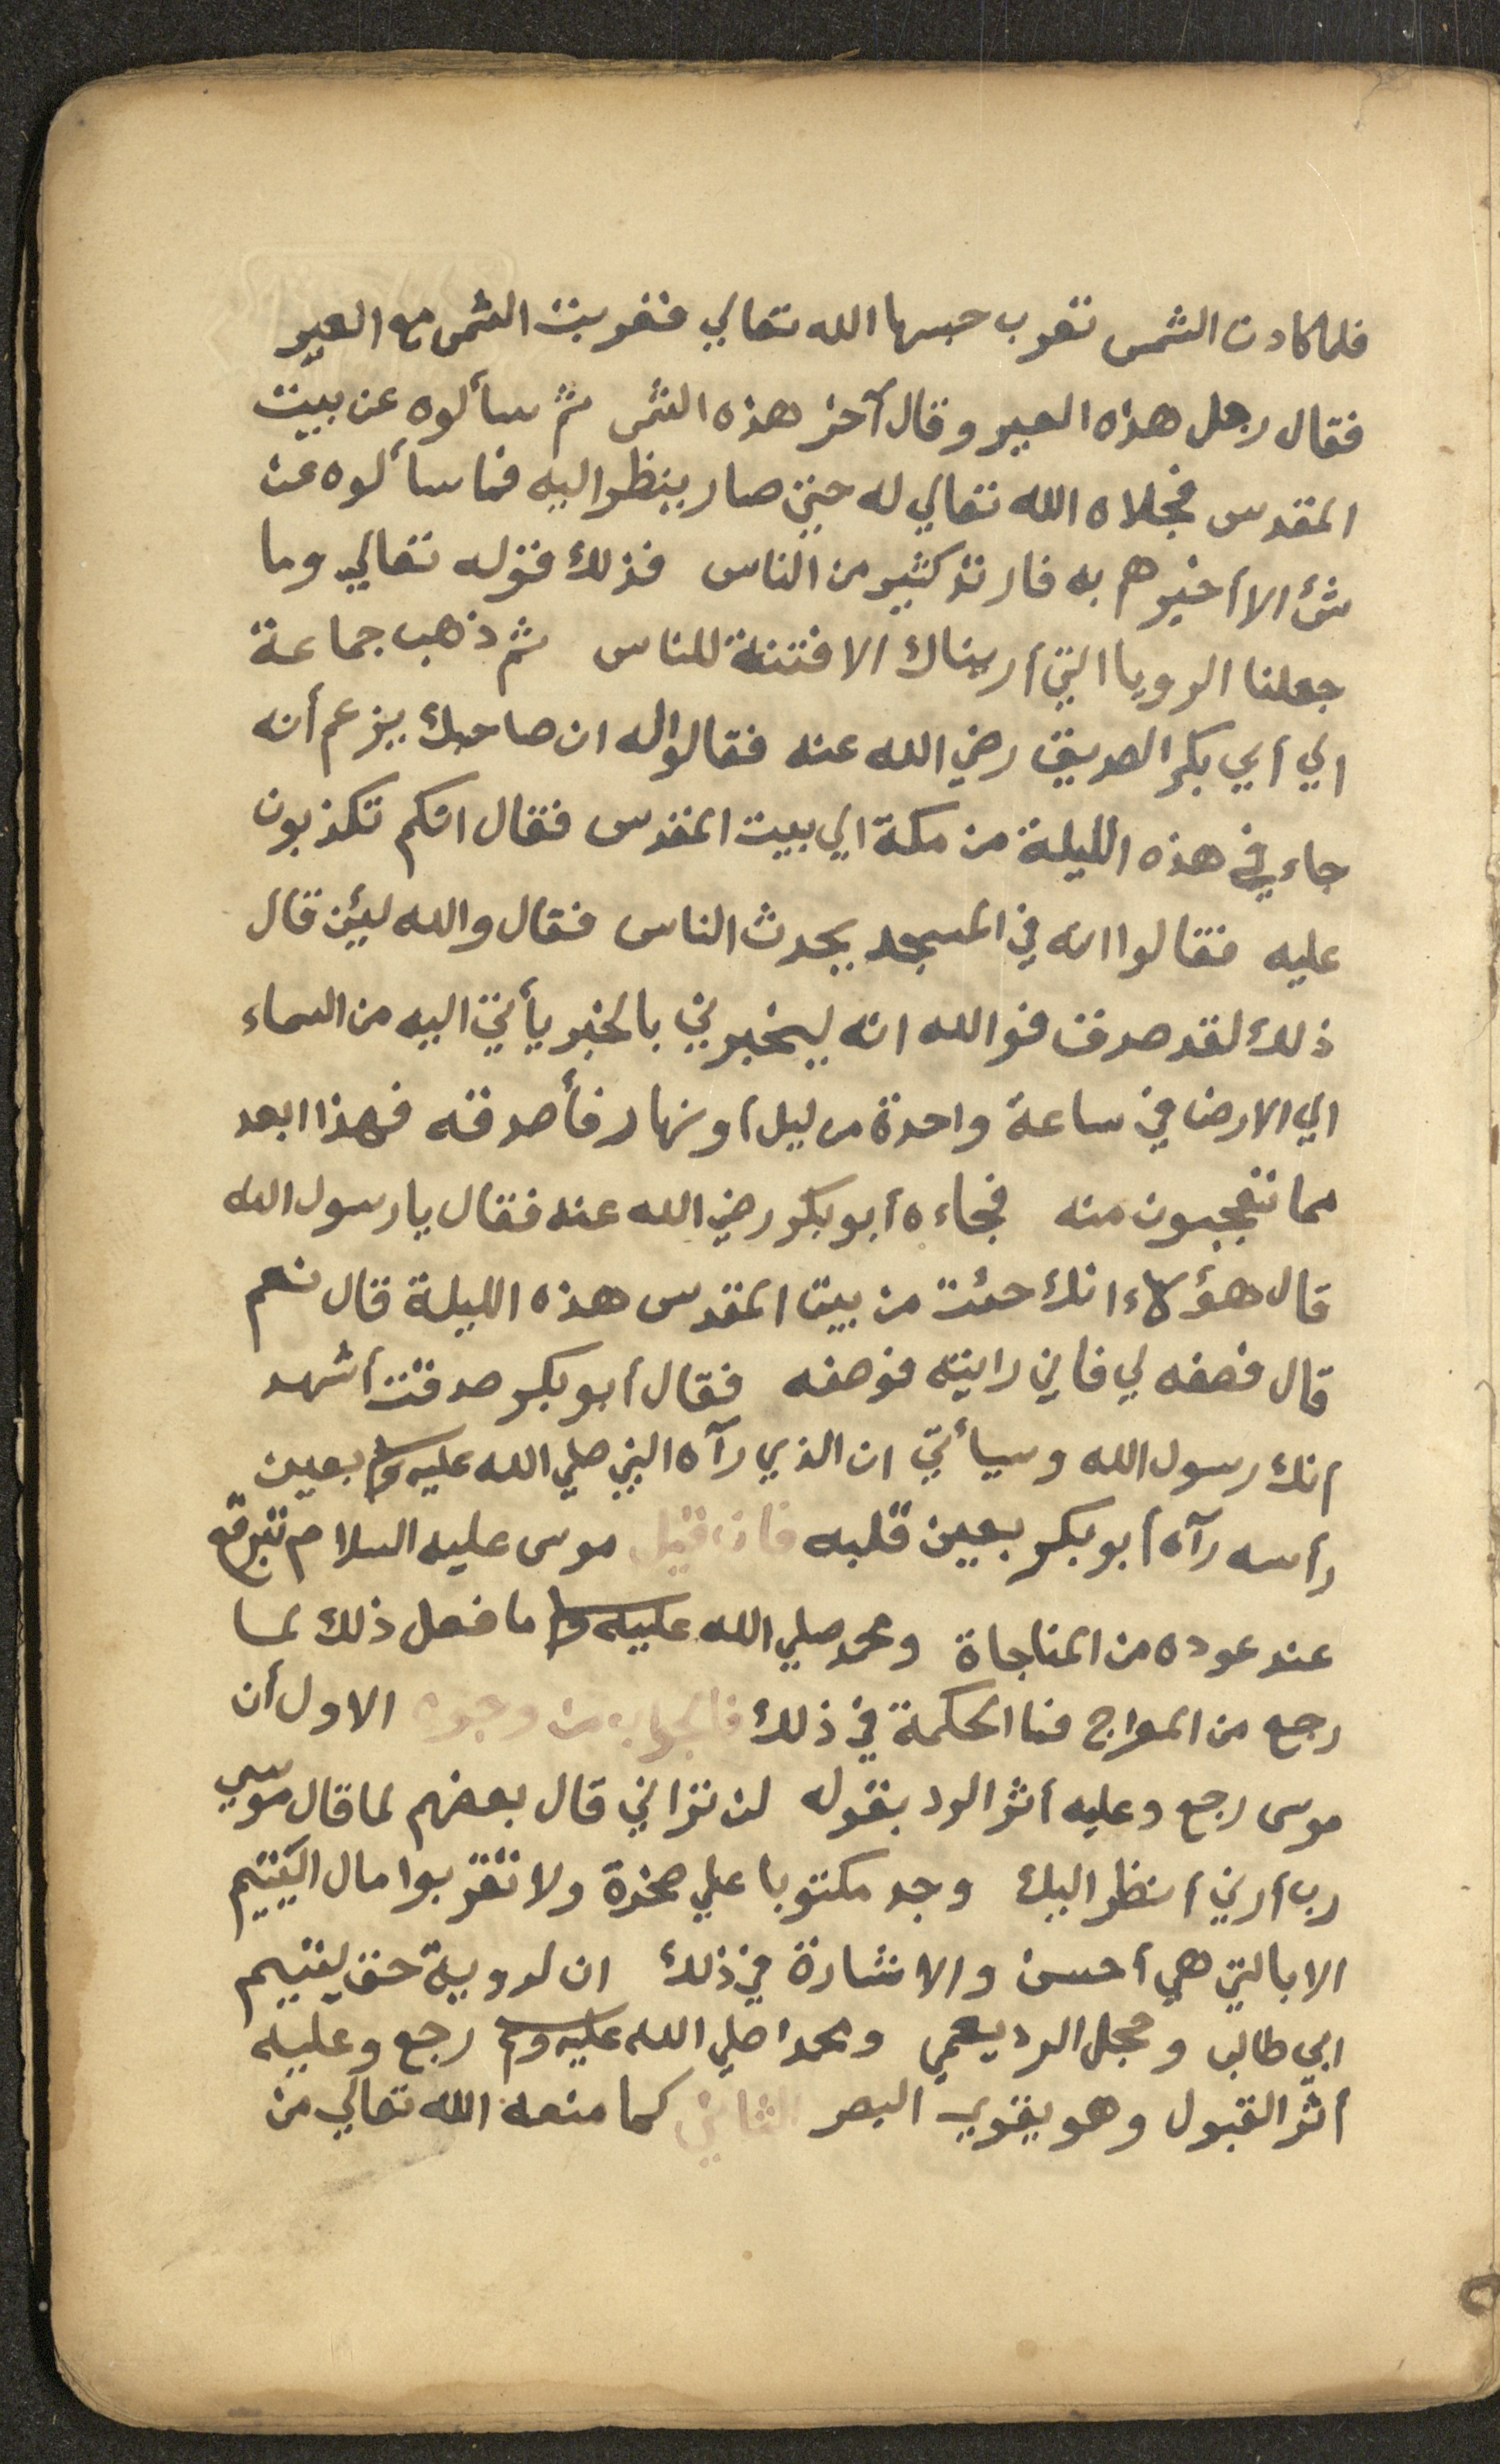 فلما كادت الشمس تغرب حبسها الله تعالي فغربت الشمس مع العير
فقال رجل هذه العير وقال آخر هذه الشمس ثم سألوه عن بيت
المقدس فجلاه الله تعالي له حتى صار ينظر اليه فما سألوه عن
شئ الا أخبرهم به فارتد كثير من الناس فذلك قوله تعالي وما
جعلنا الرويا التي أريناك الا فتنة للناس ثم ذهب جماعة
الي أبي بكر الصديق رضي الله عنه فقالوا له ان صاحبك يزعم أنه
جاء في هذه الليلة من مكة الي بيت المقدس فقال انكم تكذبون
عليه فقالوا انه في المسجد يحدث الناس فقال والله ليئن قال
ذلك لقد صدق فوالله انه ليخبرني بالخبر يأتي اليه من السماء
الي الارض في ساعة واحدة من ليل أو نهار فأصدقه فهذا ابعد
مما تتعجبون منه فجاءه أبو بكر رضي الله عنه فقال يا رسول الله
قال هؤلاء انك جئت من بيت المقدس هذه الليلة قال نعم
قال فصفه لي فاني رايته فوصفه فقال أبو بكر صدقت أشهد
أنك رسول الله وسيأتي ان الذي رآه النبي صلي الله عليه وسلم بعين
رأسه رآه أبو بكر بعين قلبه فان قيل موسى عليه السلام تبرقع
عند عوده من المناجاة ومحمد صلي الله عليه وسلم ما فعل ذلك لما
رجع من المعراج فما الحكمة في ذلك فالجواب من وجوه الاول أن
موسى رجع وعليه أثر الرد بقوله لن تراني قال بعضهم لما قال موسي
رب أرني أنظر اليك وجد مكتوبا علي صخرة ولا تقربوا مال اليتيم
الا بالتي هي أحسن والاشارة في ذلك ان لروية حق ليتيم
ابي طالب وخجل الرد يعمي ومحمدا صلي الله عليه وسلم رجع وعليه
أثر القبول وهو يقوي البصر الثاني كما منعه الله تعالي من